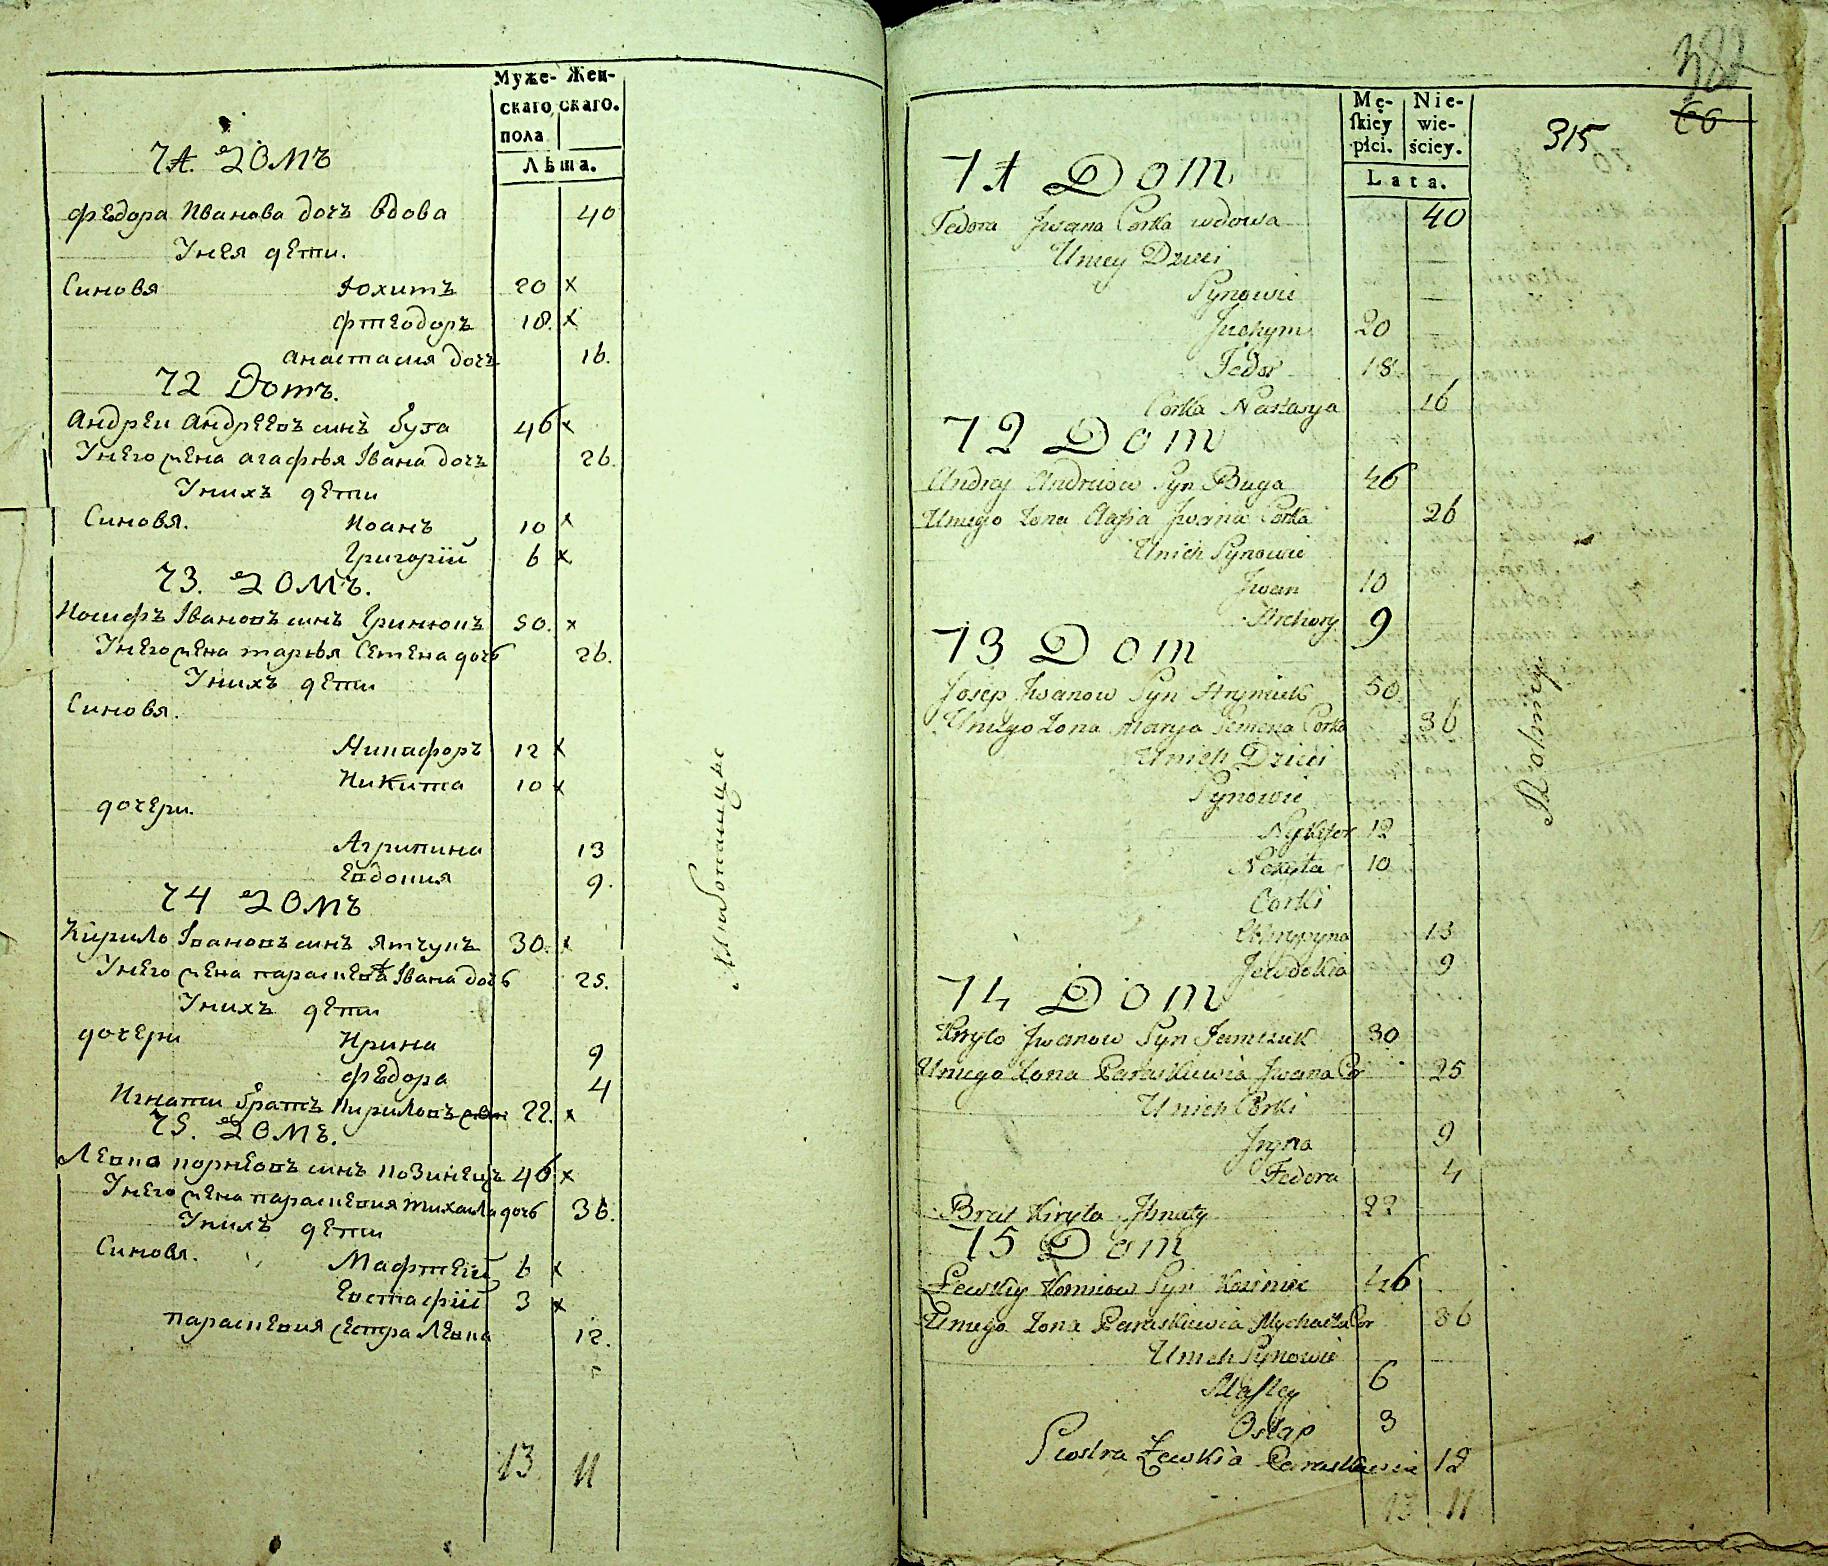 Муже- Жен-
скаго скаго.
пола
Лѣта.
71. Домъ
Федора Иванова дочъ вдова 40
Унея дети.
Синовя Юхимъ 20 x
Фтеодоръ 18. x
Анастасия дочъ 16.
72 Домъ.
Андреи Андреевъ синъ Буга 46 x
Унего жена Агафъя Івана дочъ 26.
Унихъ дети
Синовя. Иоанъ 10 x
Григорій 6 x
73. Домъ.
Иосифъ Івановъ синъ Гринюкъ 50. x
Унего жена маръя Семена дочь 26.
Унихъ дети
Синовя.
Никифоръ 12 x
Никита 10 x
дочери.
Агрипина 13
Евдокия 9.
74 Домъ
Кирило Івановъ синъ Ятчукъ 30. x
Унего жена параскева Івана дочь 25.
Унихъ дети
дочери Ирина 9
Федора 4
Игнати братъ Кириловъ 22. x
75. Домъ.
Левко корнеовъ синъ козинецъ 46 x
Унего жена параскевия михаила дочь 36.
Унихъ дети
Синовя. Мафтей 6 x
Евстафій 3 x
параскевия сестра Левка 12.
13 11
382
66
315
Mę- Nie-
ſkiey wie-
płci. ściey.
Lata.
71 Dom
Fedora Jwana Corka wdowa 40
Uniey Dzieci
Synowie
Juchym 20
Fedor 18
Corka Nastasya 16
72 Dom
Andrey Andriiow Syn Buga 46
Uniego Zona Agafia Jwana Corka 26
Unich Synowie
Jwan 10
Hrehory 9
73 Dom
Josep Jwanow Syn Hryniuk 50
Uniego Zona Marya Semena Corka 36
Unich Dzieci
Synowie
Nykyfor 12
Nekyta 10
Corki
Ohrypyna 13
Jewdokia 9
74 Dom
Kiryło Jwanow Syn Jamczuk 30
Uniego Zona Paraskiewia Jwana Cor 25
Unich Corki
Jryna 9
Fedora 4
Brat Kiryła Jhnaty 22
75 Dom
Lewkiy Korniow Syn Koziniec 46
Uniego Zona Paraskiewia Mychaiła Cor 36
Unich Synowie
Maftey 6
Ostap 3
Siostra Lewkia Paraskiewia 12
13 11